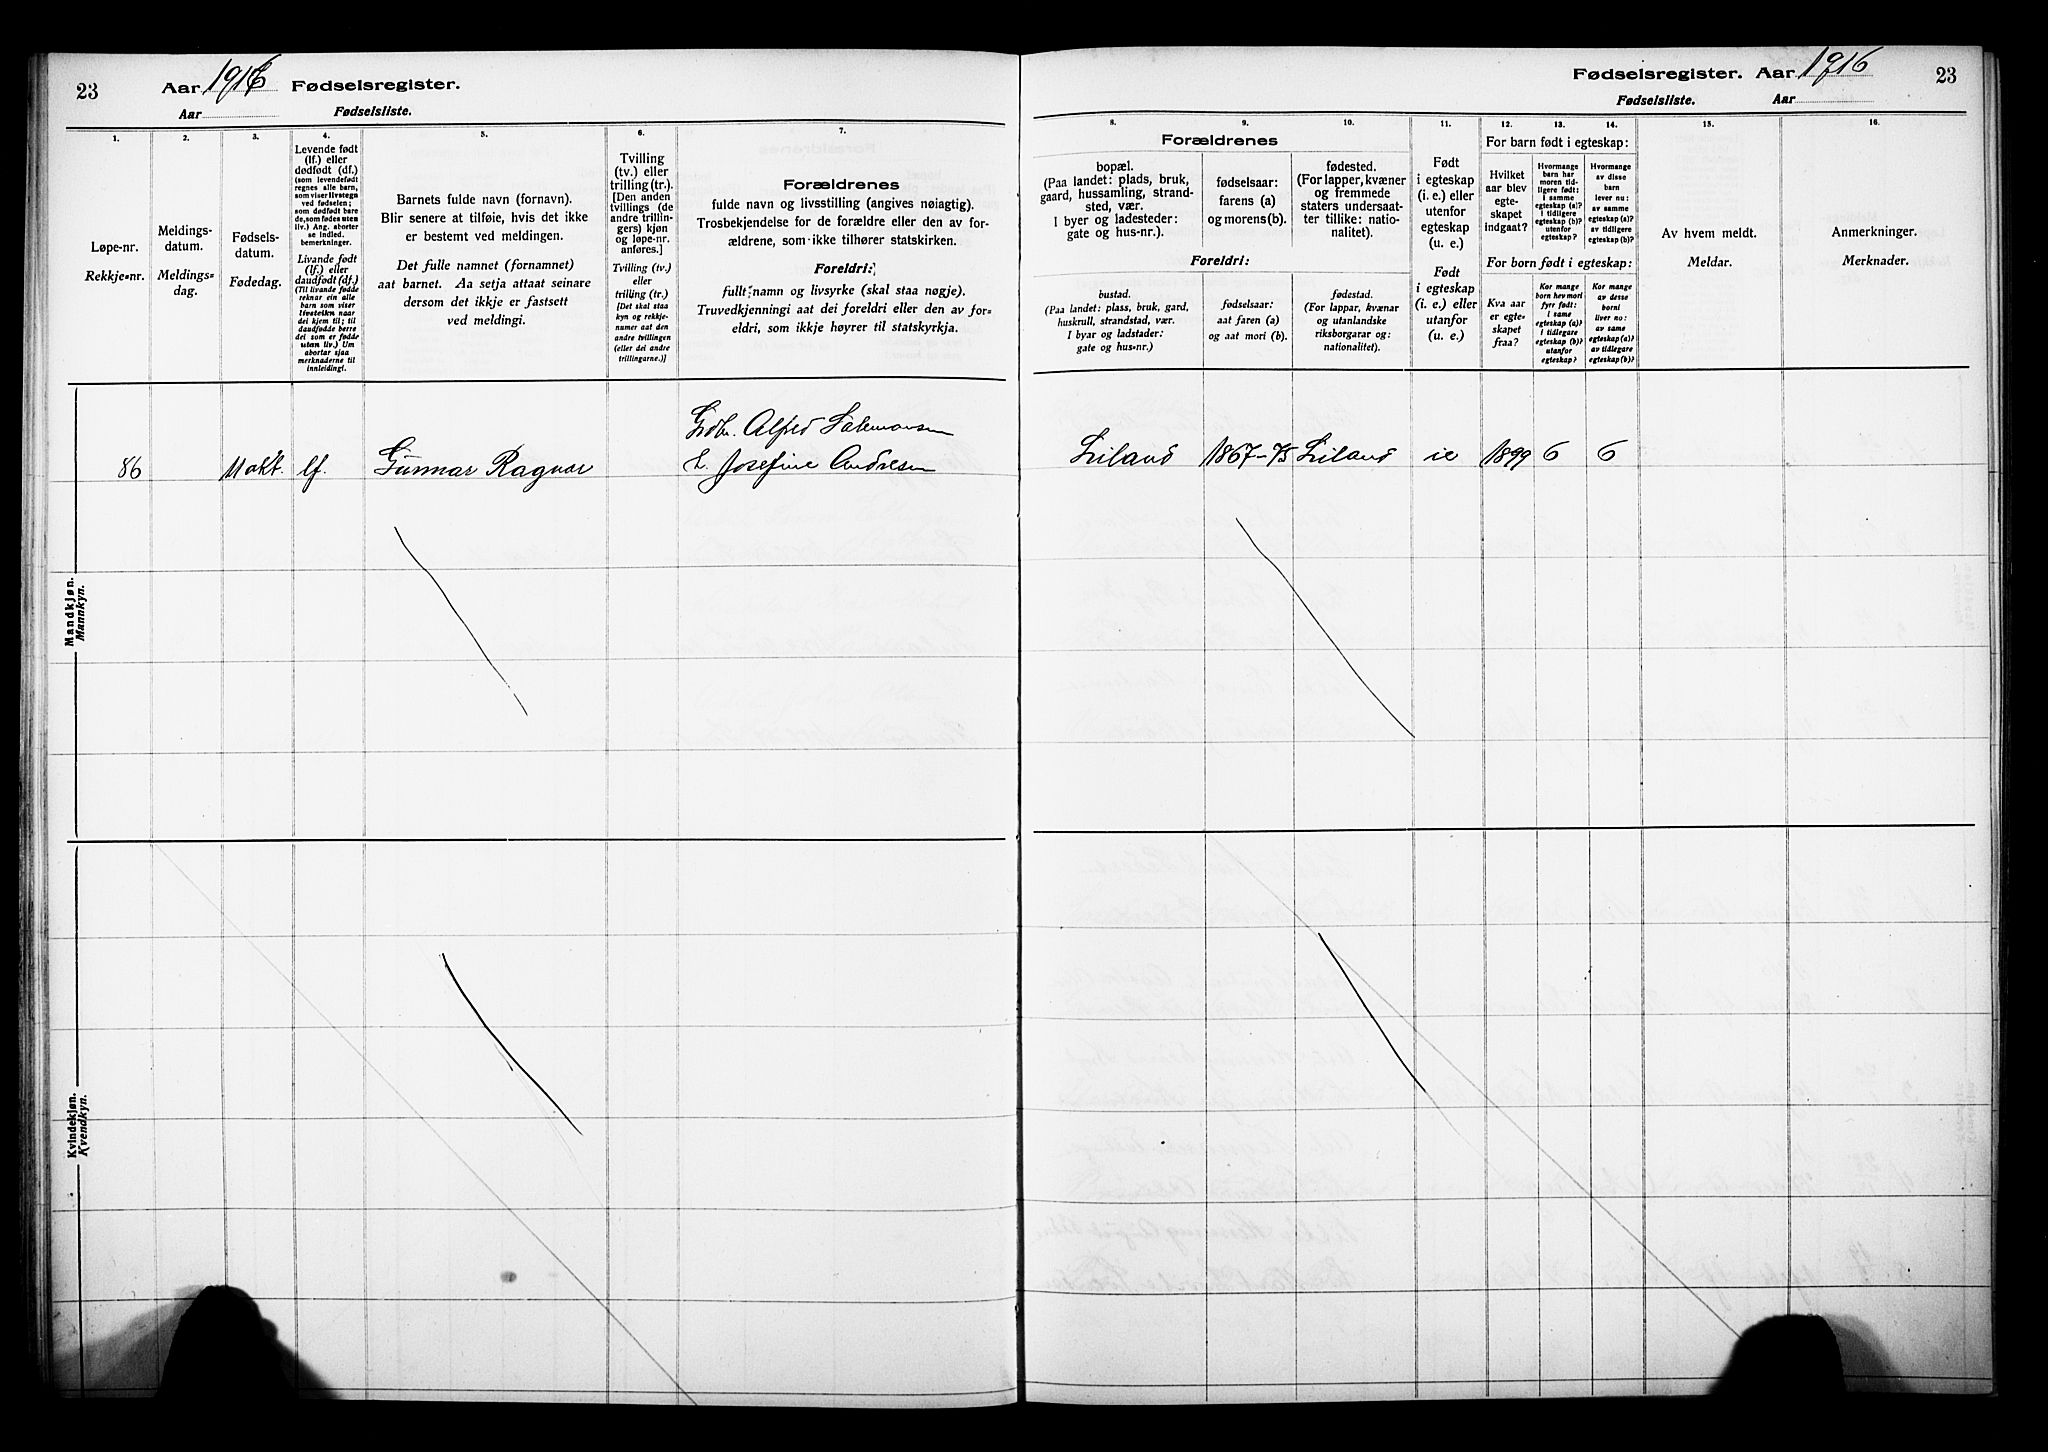 23 Aar 1916 Fødselsregister.
Aar Fødselsliste.
1. 2. 3. 4. 5. 6. 7.
Løpe-nr.
Rekkje=nr.
Meldings-
datum.
Meldings=
dag.
Fødsels-
datum.
Fødedag.
Levende født
(lf.) eller
dødfødt (df.)
(som levendefødt
regnes alle barn,
som viser livstegn
ved fødselen;
som dødfødt bare
de, som fødes uten
liv.) Ang. aborter
se indled.
bemerkninger.
Livande født
(lf.) eller
daudfødt (df.)
(Til livande fødde
reknar ein alle
barn som viser
livsteikn naar
dei kjem til; til
daudfødde berre
dei som er fødde
utan liv.) Um
abortar sjaa
merknaderne til
innleidingi.
Barnets fulde navn (fornavn).
Blir senere at tilføie, hvis det ikke
er bestemt ved meldingen.
Det fulle namnet (fornamnet)
aat barnet. Aa setja attaat seinare
dersom det ikkje er fastsett
ved meldingi.
Tvilling
(tv.) eller
trilling (tr.).
[Den anden
tvillings (de
andre trillin-
gers) kjøn
og løpe-nr.
anføres.]
Tvilling (tv.)
eller
trilling (tr.)
[Det skal staa
kyn og rekkje-
numer aat den
andre tvillingen
(eller dei andre
trillingarne.)]
Forældrenes
fulde navn og livsstilling (angives nøiagtig).
Trosbekjendelse for de forældre eller den av for-
ældrene, som ikke tilhører statskirken.
Foreldri:
fullt namn og livsyrke (skal staa nøgje).
Truvedkjenningi aat dei foreldri eller den av for=
eldri, som ikkje høyrer til statskyrkja.
Mandkjøn.
Mannkyn.
86 11 okt. lf. Gunnar Ragnar
Gdbr. Alfred Salemonsen
H. Josefine Andresen
Kvindekjøn.
Kvendkyn.
Fødselsregister. Aar 1916 23
Fødselsliste. Aar
8. 9. 10. 11. 12. 13. 14. 15. 16.
Forældrenes
bopæl.
(Paa landet: plads, bruk,
gaard, hussamling, strand-
sted, vær.
I byer og ladesteder:
gate og hus-nr.).
fødselsaar:
farens (a)
og morens(b).
fødested.
(For lapper, kvæner
og fremmede
staters undersaat-
ter tillike: natio-
nalitet).
Foreldri:
bustad.
(Paa landet: plass, bruk, gard,
huskrull, strandstad, vær.
I byar og ladstader:
gate og hus=nr.)
fødselsaar:
aat faren (a)
og aat mori (b).
fødestad.
(For lappar, kvænar
og utanlandske
riksborgarar og:
nationalitet).
Født
i egteskap
(i. e.) eller
utenfor
egteskap
(u. e.)
Født
i egteskap
(i. e.) eller
utanfor
(u. e.)
For barn født i egteskap:
Hvilket
aar blev
egte-
skapet
indgaat?
Hvormange
barn har
moren tid-
ligere født:
i samme
egteskap (a)?
i tidligere
egteskap (b)?
utenfor
egteskap?
Hvormange
av disse
barn
lever nu:
av samme
egteskap (a)?
av tidligere
egteskap (b)?
For born født i egteskap:
Kva aar
er egte=
skapet
fraa?
Kor mange
born hev mori
fyrr født:
i same
egteskap (a)?
i tidlegare
egteskap (b)?
utanfor
egteskap?
Kor mange
av desse
borni
liver no:
av same
egteskap (a)?
av tidlegare
egteskap (b)?
Av hvem meldt.
Meldar.
Anmerkninger.
Merknader.
Liland 1867-75 Liland ie 1899 6 6